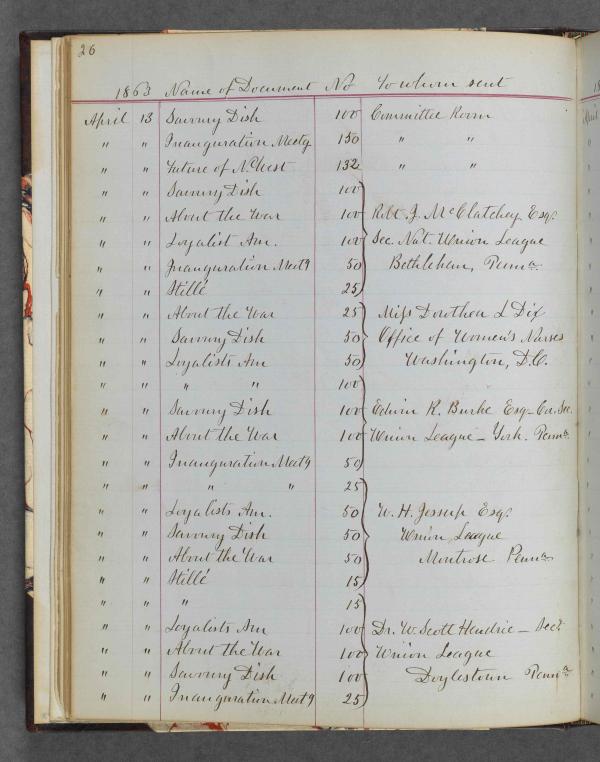 26
1863 Name of Document No To whom sent
April 13 Savoury Dish 100 Committee Room
" " Inauguration Meetg 150 " "
" " Future of N. West 132 " "
" " Savoury Dish 100
" " About the War 100 Robt. J. McClatchey Esq.
" " Loyalist Am. 100 Sec. Nat. Union League
" " Inauguration Meetg 50 Bethlehem, Penna.
" " Stillé 25
" " About the War 25 Miss Dorothea L Dix
" " Savoury Dish 50 Office of Women's Nurses
" " Loyalists Am 50 Washington, D.C.
" " " " 100
" " Savoury Dish 100 Edwin R. Burke Esq - Co. Sec.
" " About the War 100 Union League - York. Penna.
" " Inauguration Meetg 50
" " " " 25
" " Loyalists Am. 50 W. H. Jessup Esq.
" " Savoury Dish 50 Union League
" " About the War 50 Montrose Penna
" " Stillé 15
" " " 15
" " Loyalists Am 100 Dr. W. Scott Hendrie - Sect.
" " About the War 100 Union League
" " Savoury Dish 100 Doylestown Penna
" " Inauguration Meetg 25